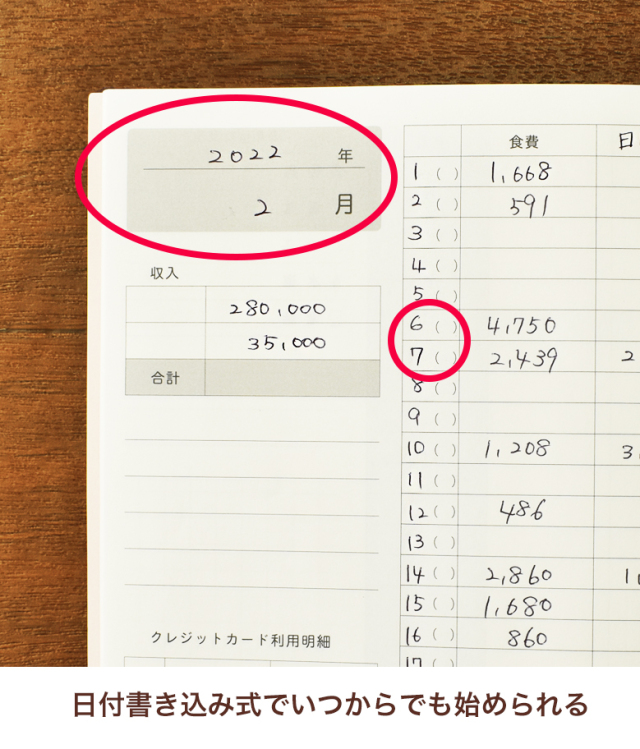 2022 年
2 月
収入
280,000
35,000
合計
クレジットカード利用明細
食費 日
1 ( ) 1,668
2 ( ) 591
3 ( )
4 ( )
5 ( )
6 ( ) 4,750
7 ( ) 2,439 2
8 ( )
9 ( )
10 ( ) 1,208 3
11 ( )
12 ( ) 486
13 ( )
14 ( ) 2,860 1
15 ( ) 1,680
16 ( ) 860
17 ( )
日付書き込み式でいつからでも始められる